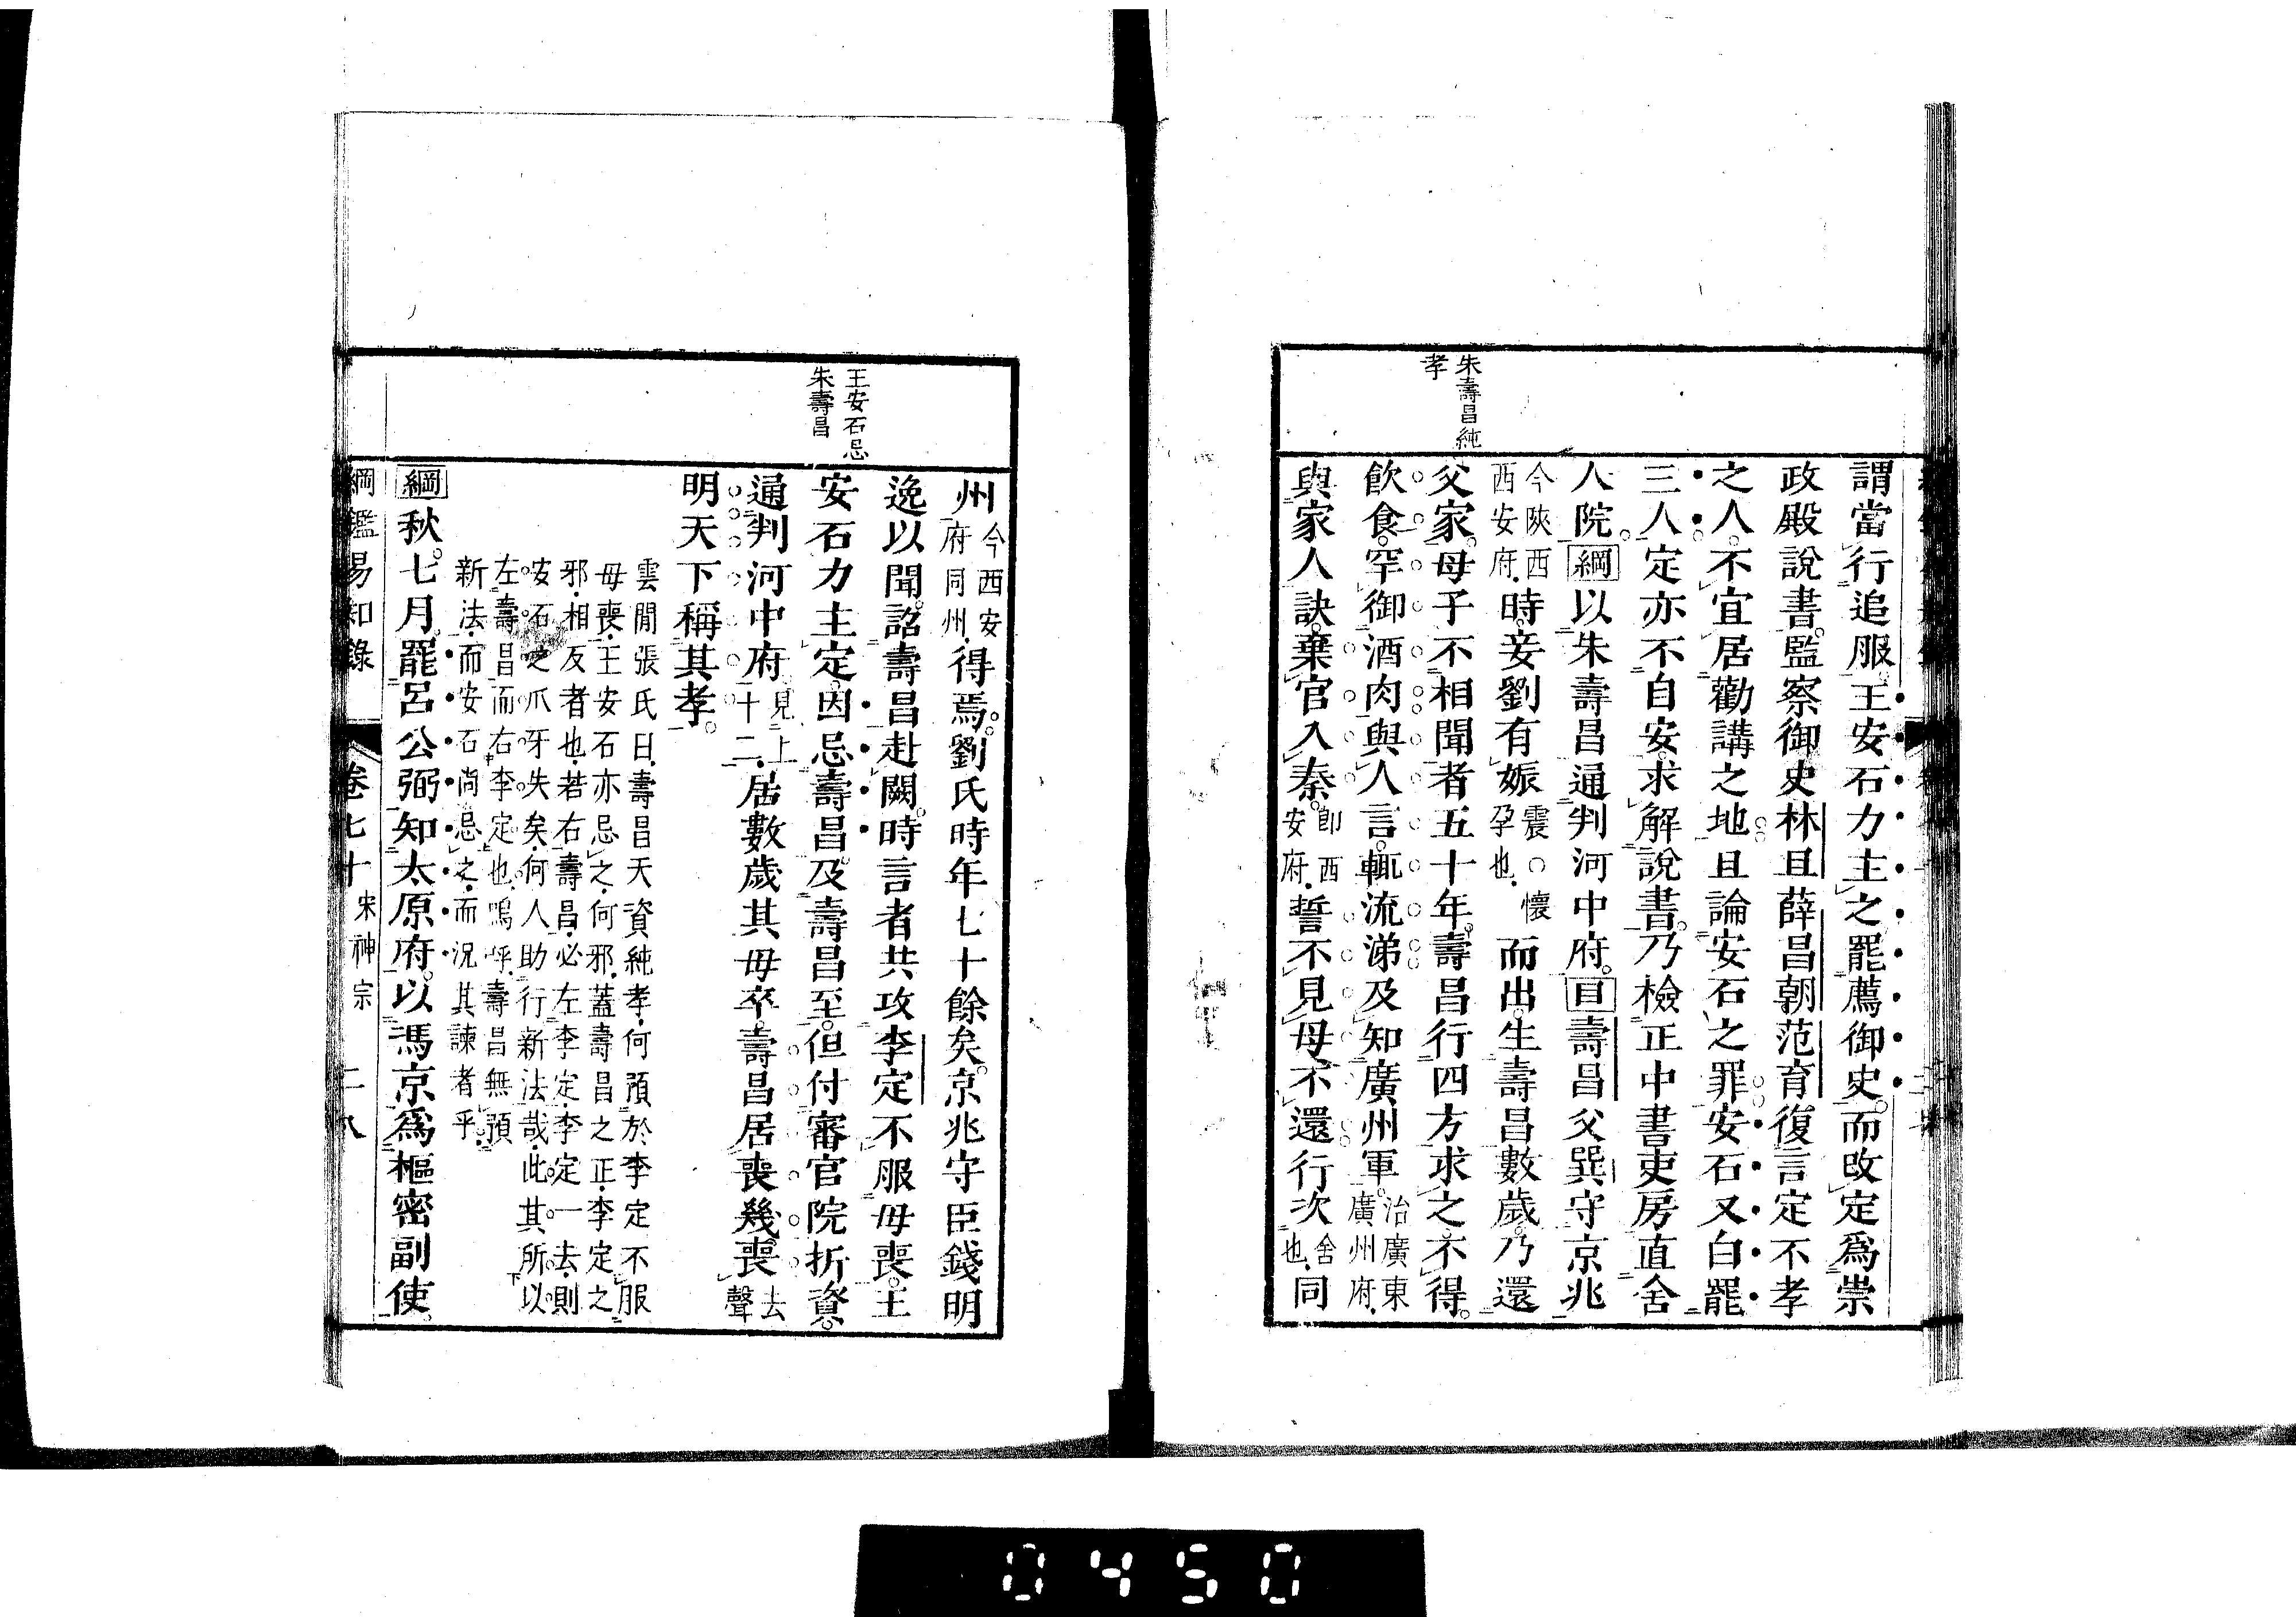 朱壽昌純
孝
謂當行追服。王安石力主之罷薦御史。而改定爲崇
政殿說書。監察御史林旦薛昌朝范育復言定不孝
之人。不宜居勸講之地。且論安石之罪。安石又白罷
三人。定亦不自安。求解說書。乃檢正中書吏房直舍
人院。綱以朱壽昌通判河中府。目壽昌父巽守京兆
今陝西西安府。時妾劉有娠震○懷孕也。而出。生壽昌數歲。乃還
父家。母子不相聞者五十年。壽昌行四方求之不得。
飲食。罕御酒肉。與人言。輒流涕。及知廣州軍。治廣東廣州府。
與家人訣。棄官入秦。卽西安府。誓不見母不還。行次舍也。同
王安石忌
朱壽昌
州今西安府同州。得焉。劉氏時年七十餘矣。京兆守臣錢明
逸以聞。詔壽昌赴闕。時言者共攻李定不服母喪。王
安石力主定。因忌壽昌。及壽昌至。但付審官院折資。
通判河中府。見上十二。居數歲其母卒。壽昌居喪幾喪去聲
明。天下稱其孝。
雲閒張氏曰。壽昌天資純孝。何預於李定不服
母喪。王安石亦忌之。何邪。蓋壽昌之正。李定之
邪。相反者也。若右壽昌。必左李定。李定一去。則
安石之爪牙失矣。何人助行新法哉。此其所以
左壽昌而右李定也。嗚呼。壽昌無預
新法。而安石尚忌之。而況其諫者乎。
綱秋。七月。罷呂公弼知太原府。以馮京爲樞密副使。
綱鑑易知錄 卷七十 宋神宗 二八
0450